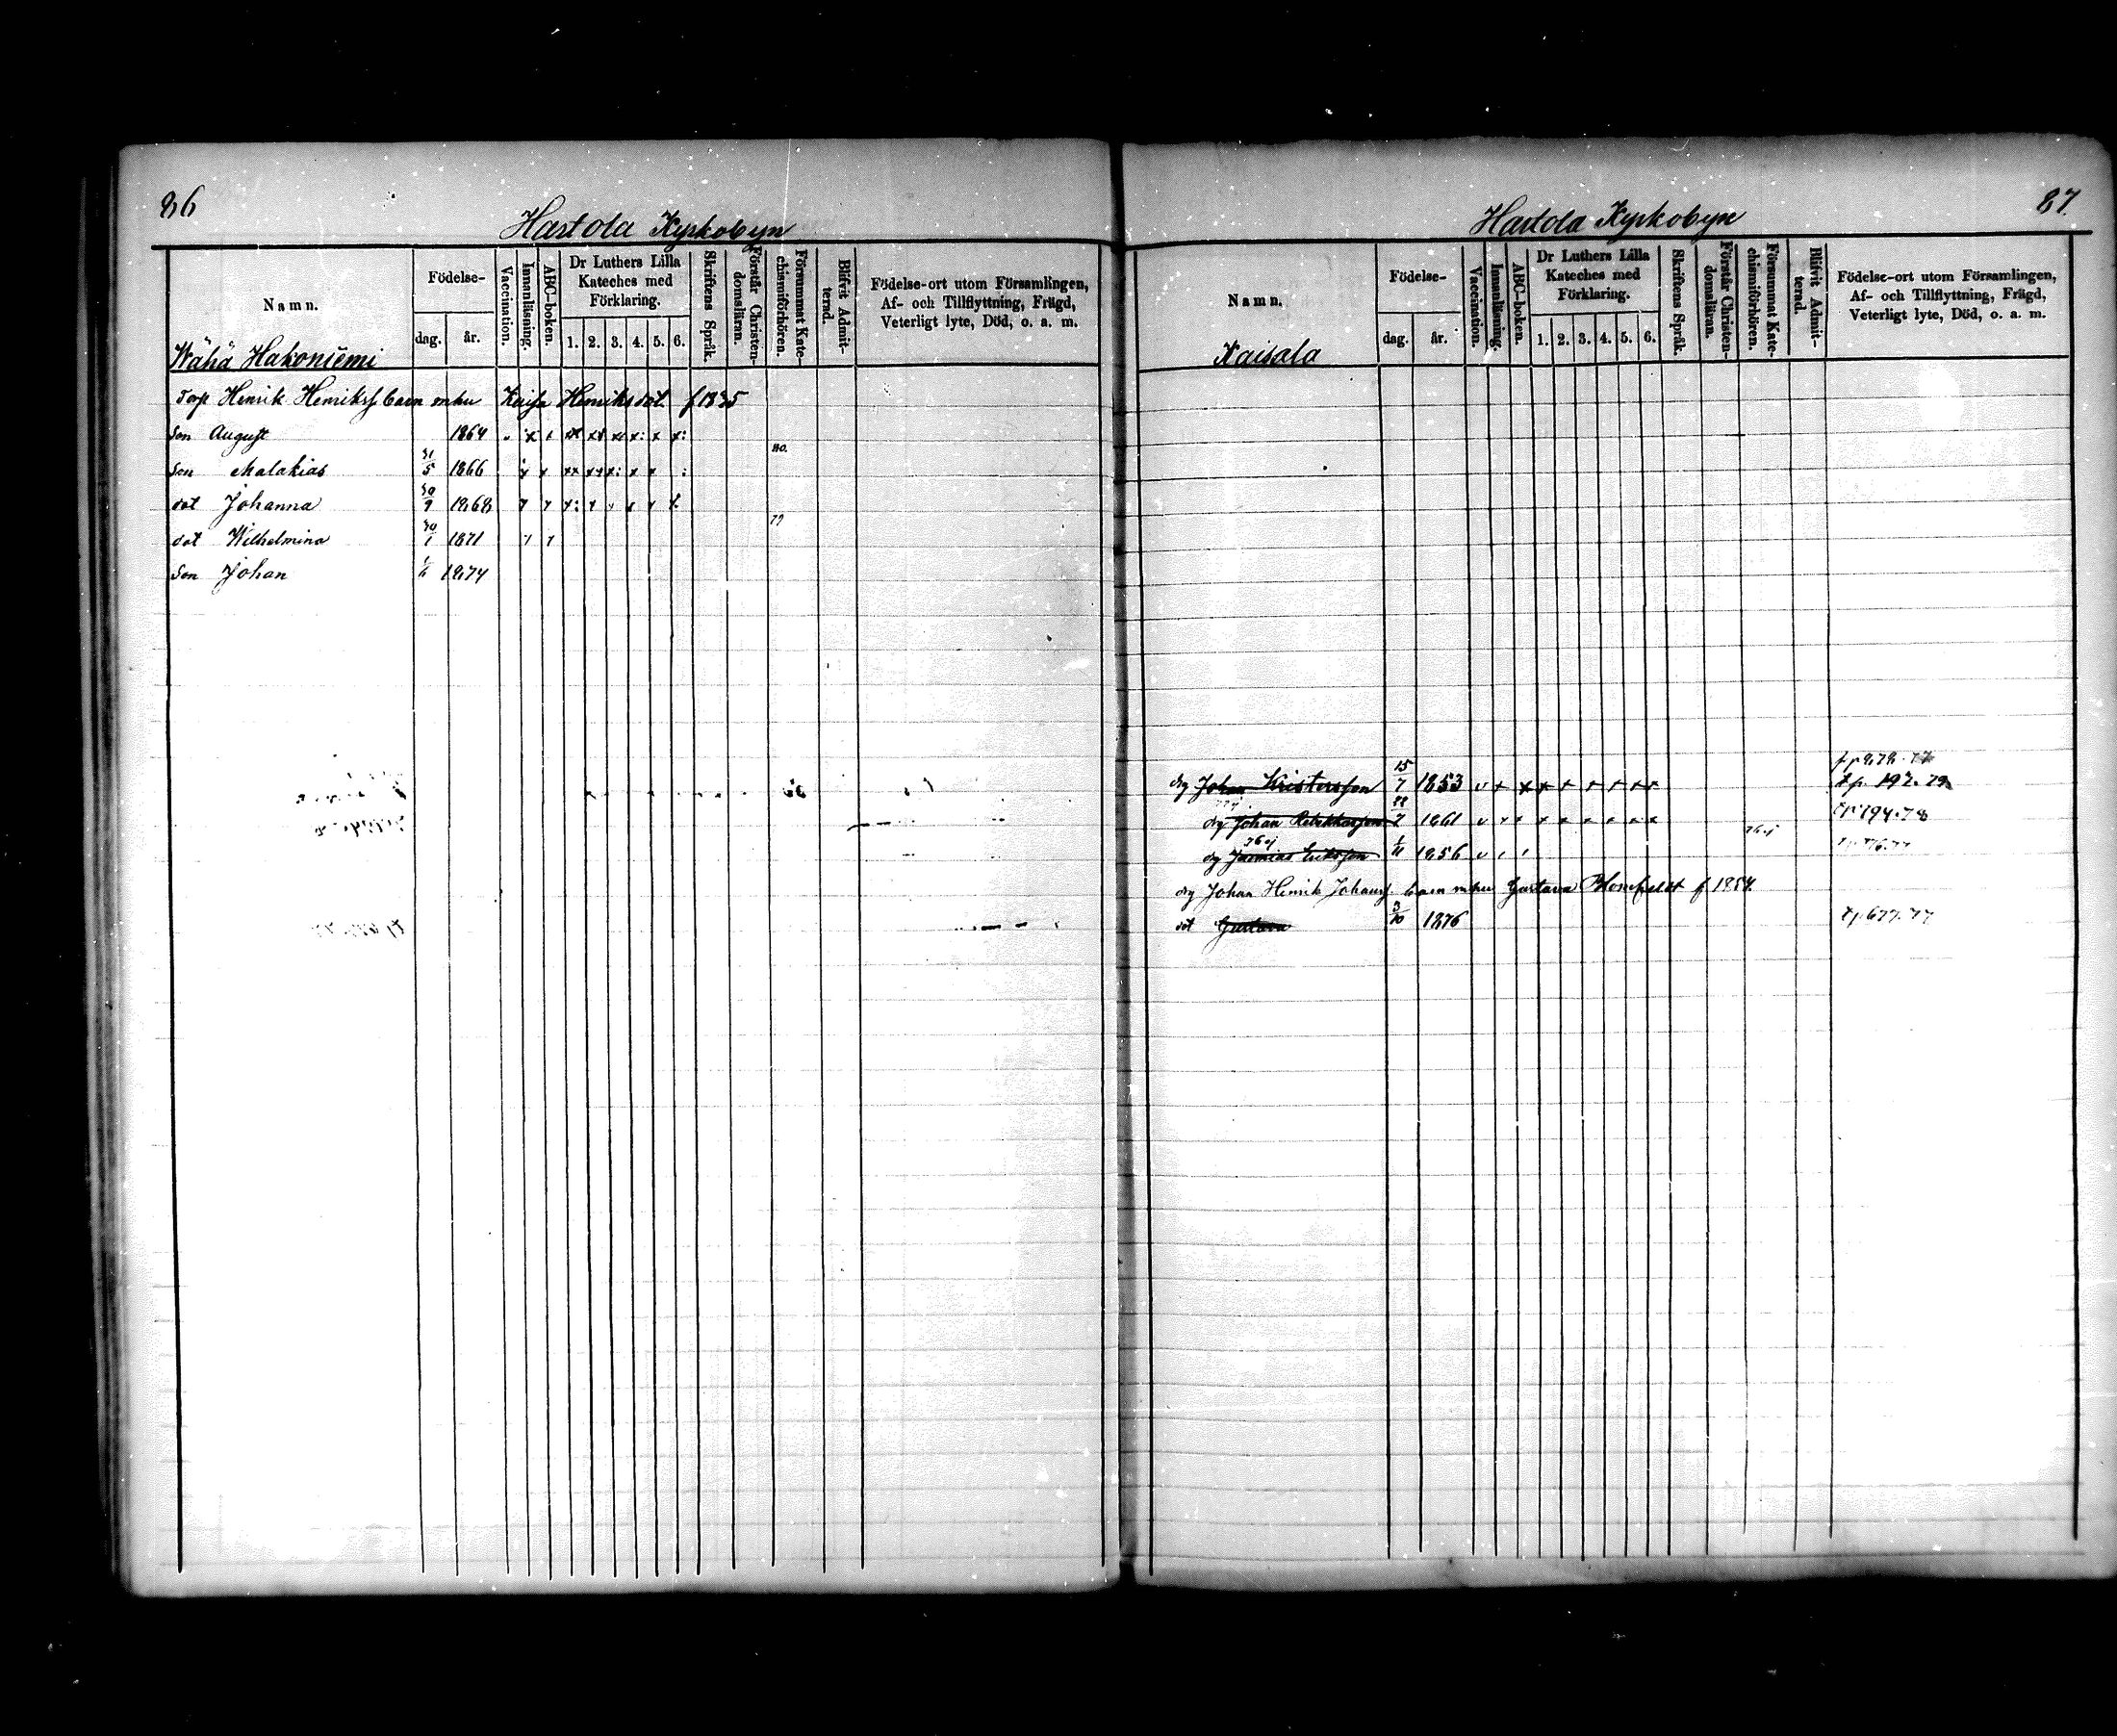 86
Hartola Kyrkobyn
Namn.
Födelse-
dag.
år.
Vaccination.
Innanläsning.
ABC-boken.
Dr Luthers Lilla Kateches med Förklaring.
1. 2. 3. 4. 5. 6.
Skriftens Språk.
Förstår Christen-domsläran.
Försummat Kate-chismiförhören.
Blifvit Admit-terad.
Födelse-ort utom Församlingen, Af- och Tillflyttning, Frägd, Veterligt lyte, Död, o. a. m.
Wähä Hakoniemi
Torp Henrik Henrikss barn m hu Kaisa Henriksdot. f 1835
Son August 1864
Son Malakias 31/5 1866 80.
dot Johanna 30/9 1868
dot Wilhelmina 30/1 1871 79
Son Johan 1874
87.
Hartola Kyrkobyn
Namn.
Födelse-
dag.
år.
Vaccination.
Innanläsning.
ABC-boken.
Dr Luthers Lilla Kateches med Förklaring.
1. 2. 3. 4. 5. 6.
Skriftens Språk.
Förstår Christen-domsläran.
Försummat Kate-chismiförhören.
Blifvit Admit-terad.
Födelse-ort utom Församlingen, Af- och Tillflyttning, Frägd, Veterligt lyte, Död, o. a. m.
Kaisala
drg Johan Kristersson 15/7 1853 v
drg Johan 1861 v t p 194.78
drg Eriksson 1/11 1856 v
drg Johan Henrik Johanss. barn m hu Gustava f 1854.
dot Gustava 3/10 1876 t p 677.77